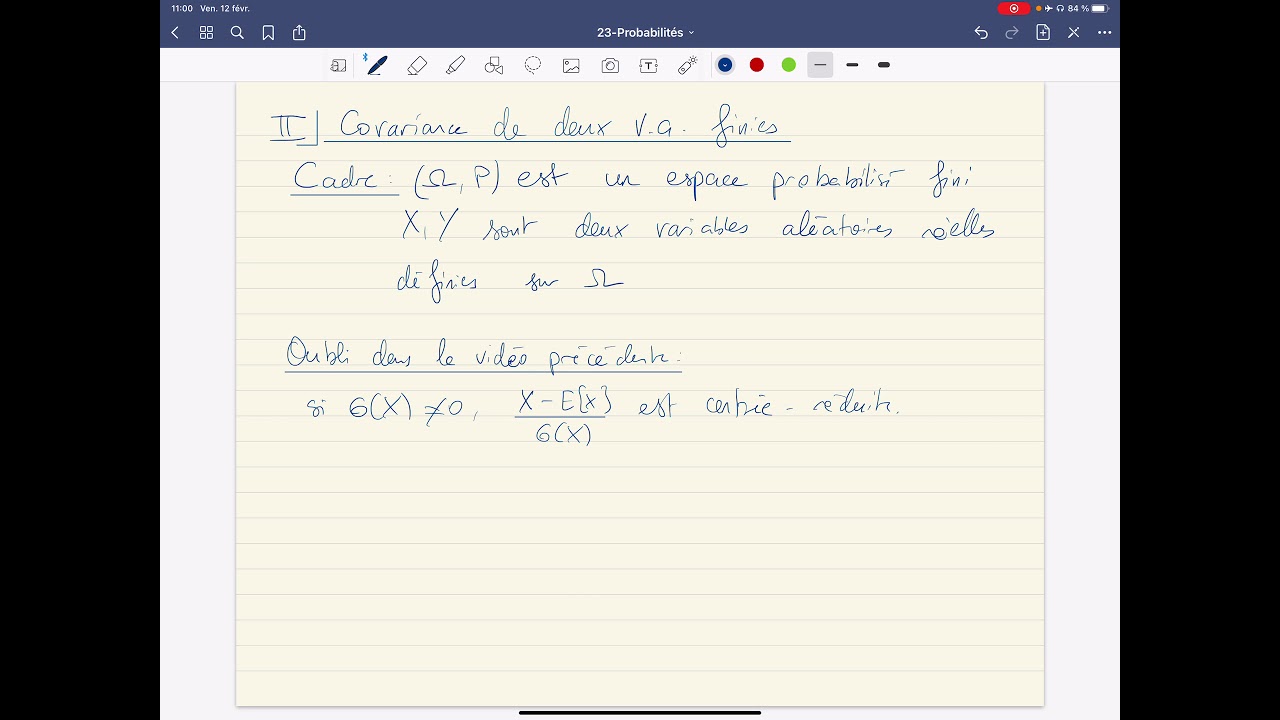 11:00 Ven. 12 févr.
84 %
23-Probabilités
II] Covariance de deux v.a. finies
Cadre : (Ω, P) est un espace probabilisé fini
X, Y sont deux variables aléatoires réelles
définies sur Ω
Oubli dans la vidéo précédente :
si σ(X) ≠ 0, (X − E[X]) / σ(X) est centrée-réduite.